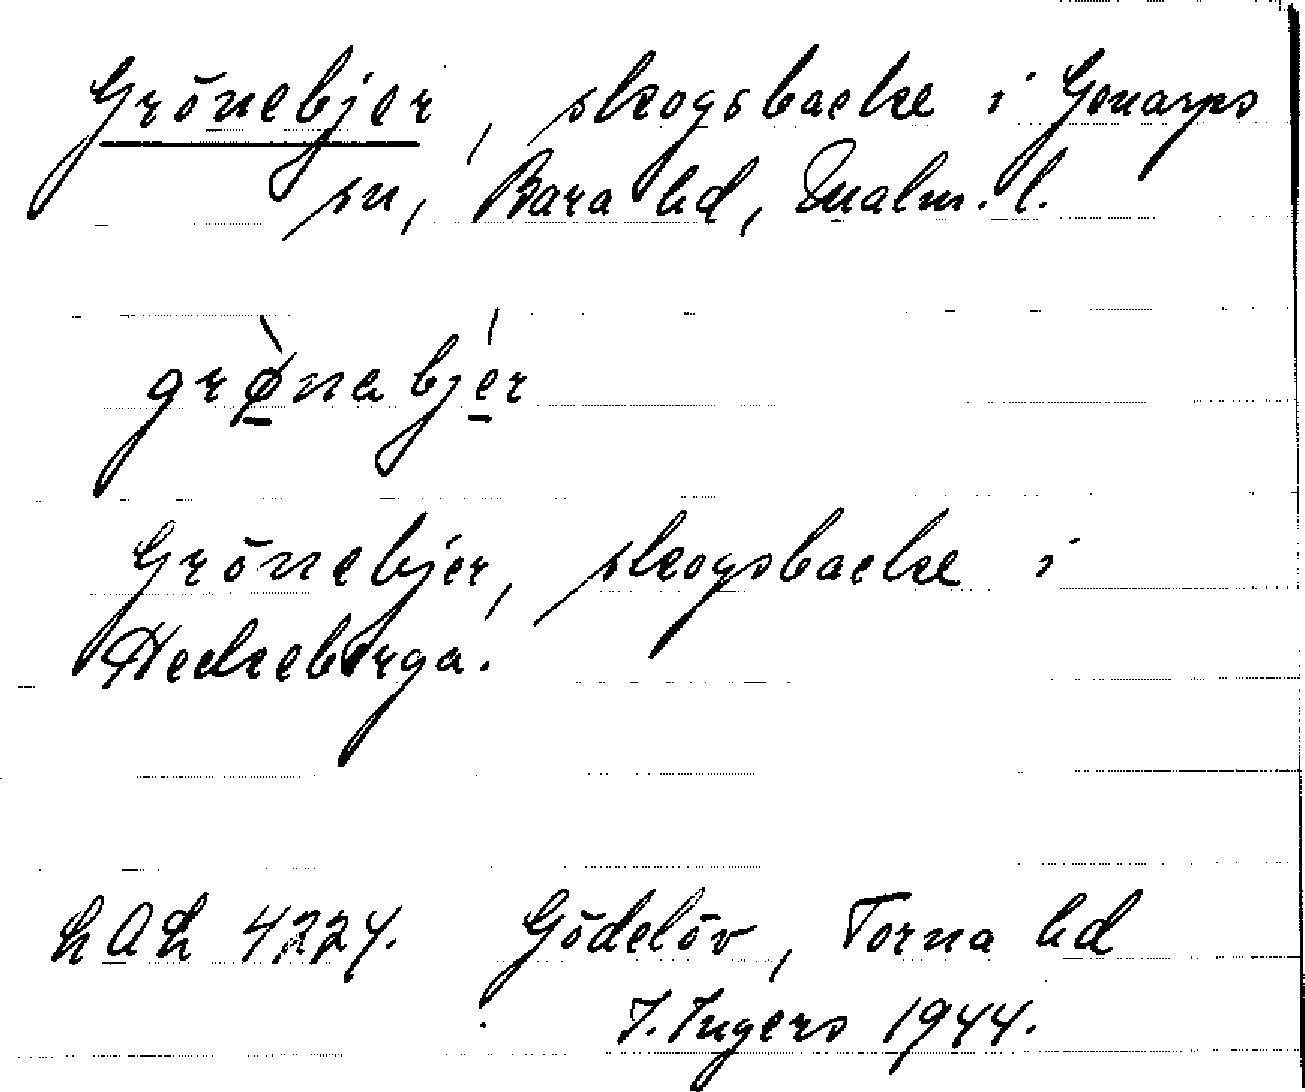 Grönebjer, skogsbacke i Genarps
sn, Bara hd, Malm. l.
grø̀nabjér
Grönebjer, skogsbacke i
Heckeberga.
LAL 4224. Gödelöv, Torna hd
I. Ingers 1944.